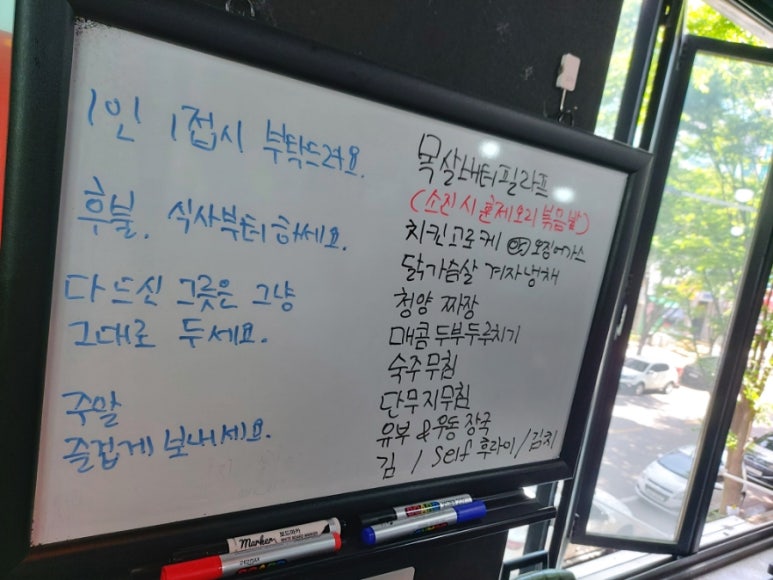 1인 1접시 부탁드려요.
후불. 식사부터 하세요.
다 드신 그릇은 그냥
그대로 두세요.
주말
즐겁게 보내세요.
목살버터필라프
(소진시 훈제오리볶음밥)
치킨고로케 or 오징어가스
닭가슴살 겨자냉채
청양 짜장
매콤두부두루치기
숙주무침
단무지무침
유부 & 우동 장국
김 / Self 후라이 / 김치
보드마카
Marker